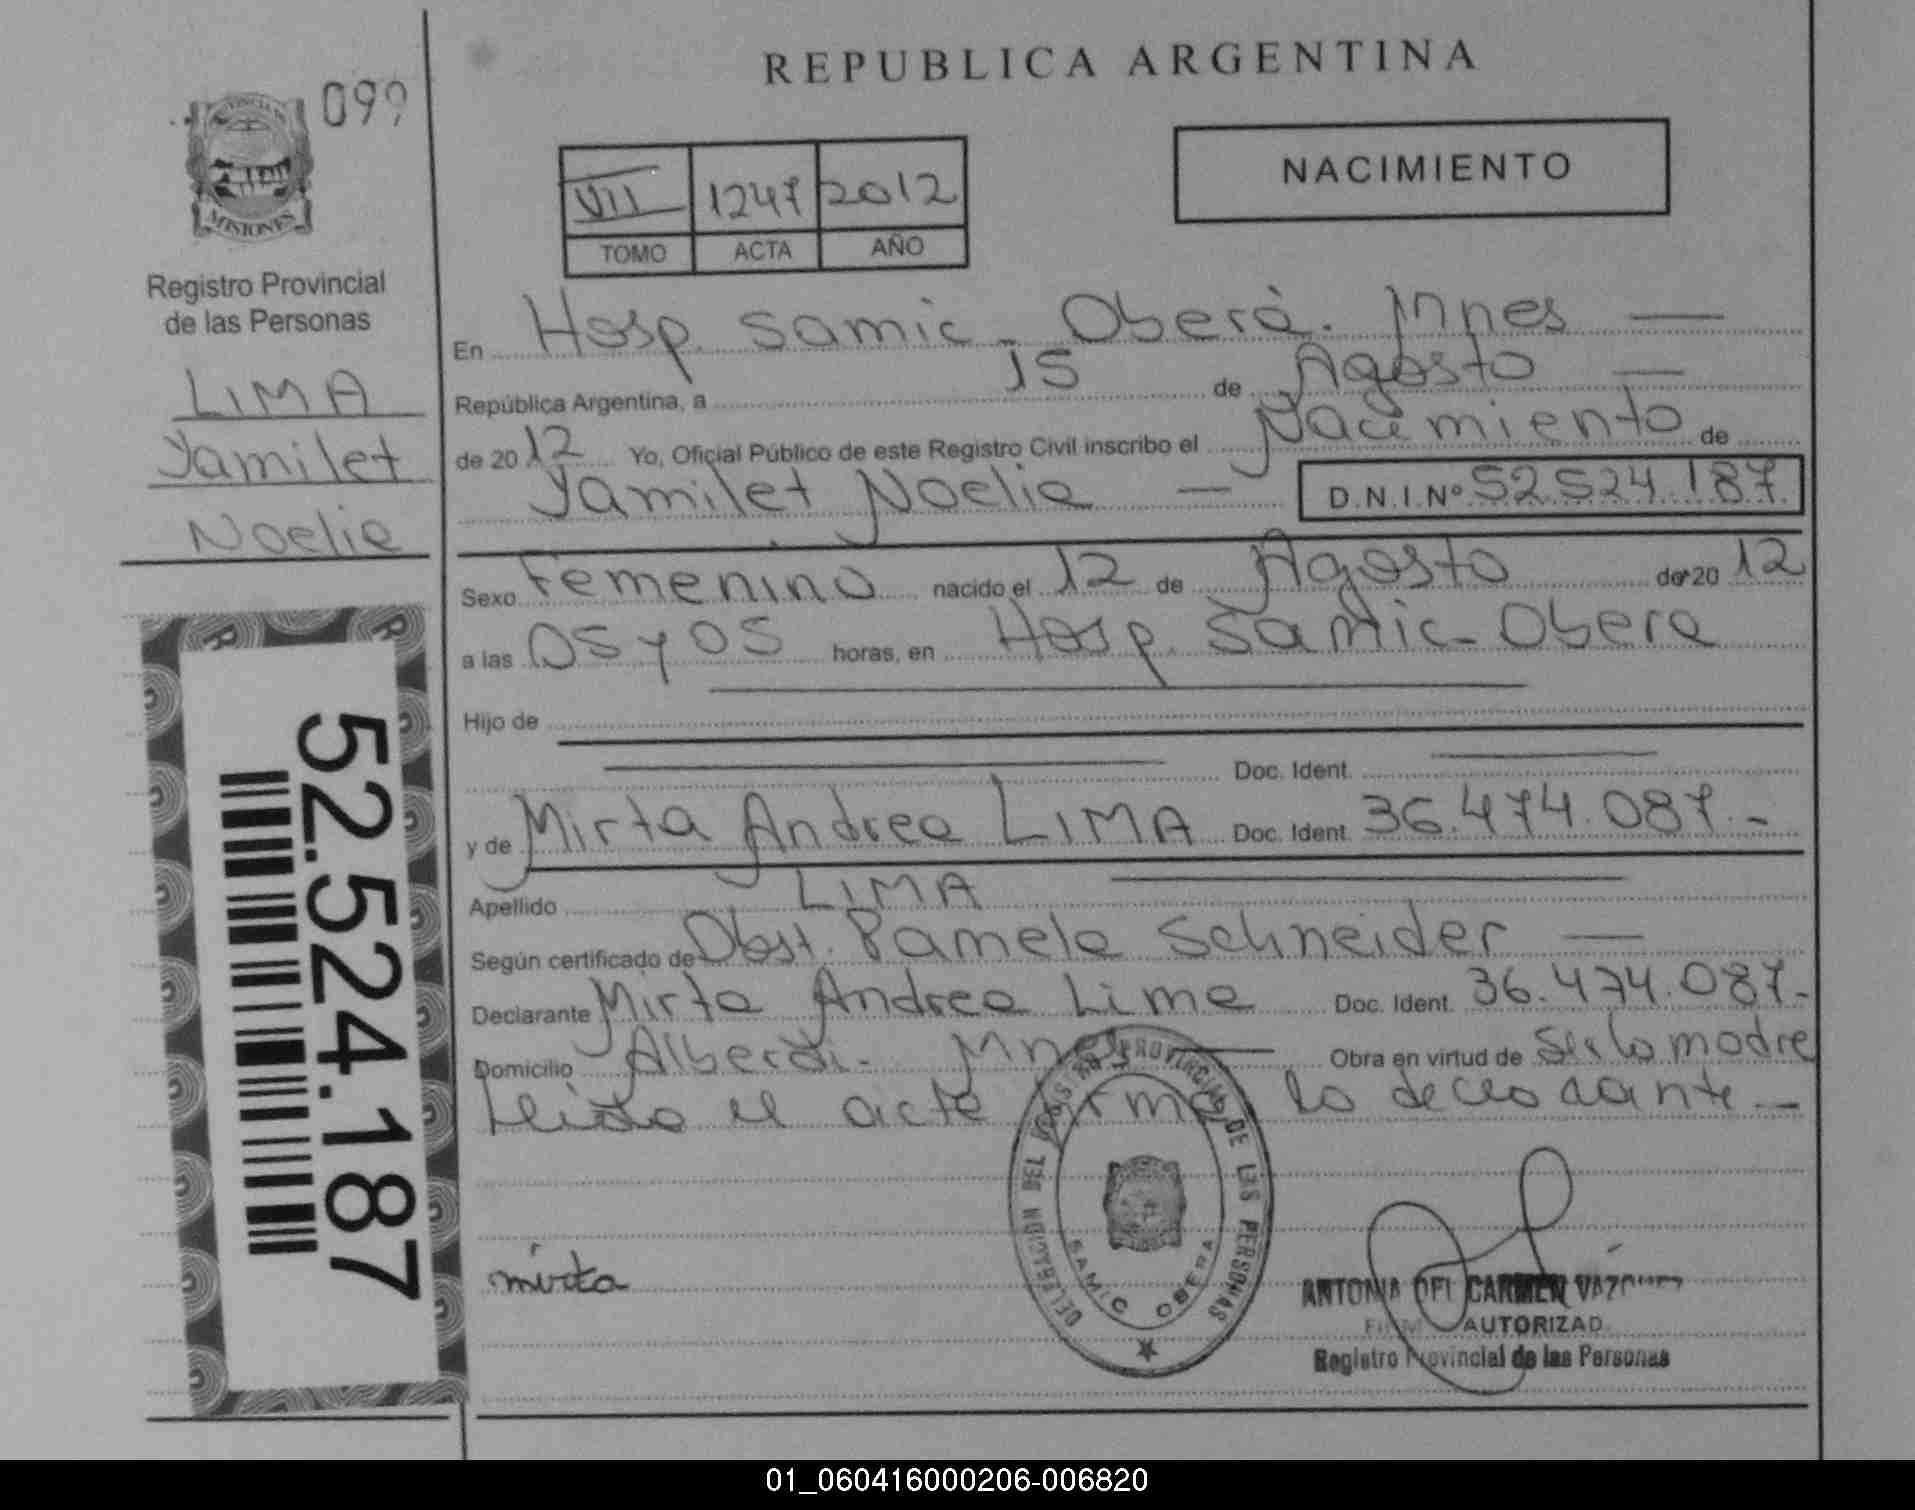 REPUBLICA ARGENTINA
099
PROVINCIA DE
MISIONES
NACIMIENTO
VII 1247 2012
TOMO ACTA AÑO
Registro Provincial
de las Personas
LIMA
Yamilet
Noelia
52.524.187
En Hosp. Samic - Oberá. Mnes
República Argentina, a 15 de Agosto
de 2012 Yo, Oficial Público de este Registro Civil inscribo el Nacimiento de
Yamilet Noelia D.N.I.Nº 52.524.187
Sexo Femenino nacido el 12 de Agosto de 20 12
a las 05 y 05 horas, en Hosp. Samic - Obera
Hijo de
Doc. Ident.
y de Mirta Andrea LIMA Doc. Ident. 36.474.087.-
Apellido LIMA
Según certificado de Obst. Pamela Schneider
Declarante Mirta Andrea Lima Doc. Ident. 36.474.087-
Domicilio Alberdi - Mnes Obra en virtud de ser la madre
Leída el acta firma la declarante -
DELEGACION DEL REGISTRO PROVINCIAL DE LAS PERSONAS
SAMIC OBERA
mirta
ANTONIA DEL CARMEN VAZQUEZ
AUTORIZAD
Registro Provincial de las Personas
01_060416000206-006820